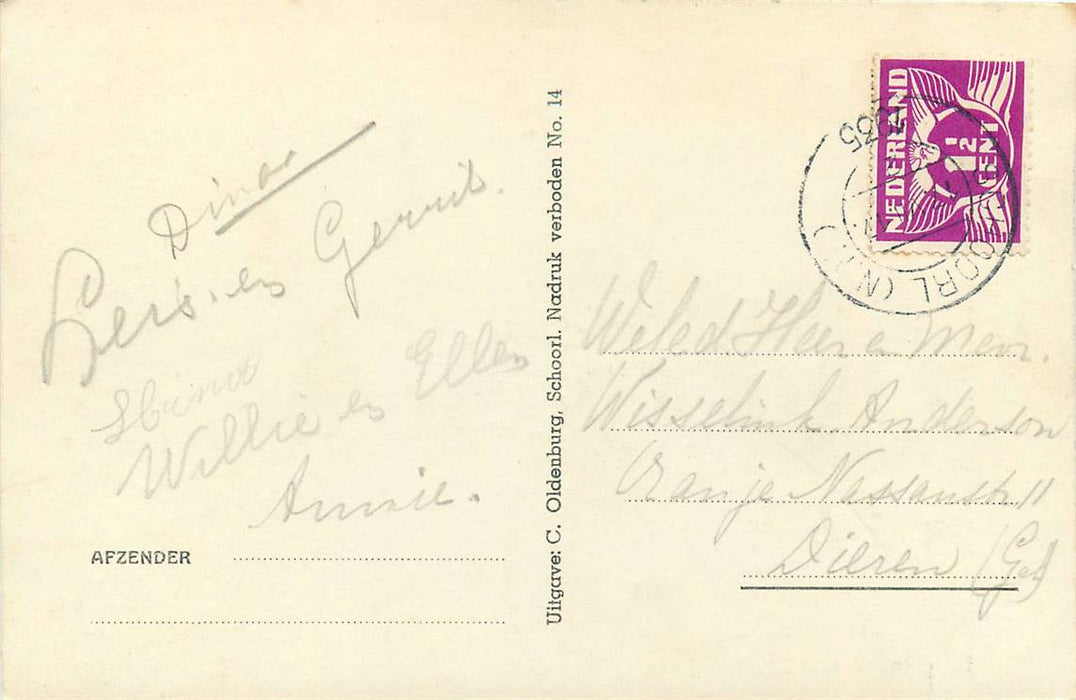 Dina
Gerrit.
en
Willie en Ellen
Annie.
AFZENDER
Uitgave: C. Oldenburg, Schoorl. Nadruk verboden No. 14
NEDERLAND
1½
CENT
1935
SCHOORL (N.H.)
Weled. Heer en Mevr.
Wisselink Anderson
Oranje Nassaustr. 11
Dieren (Gel)